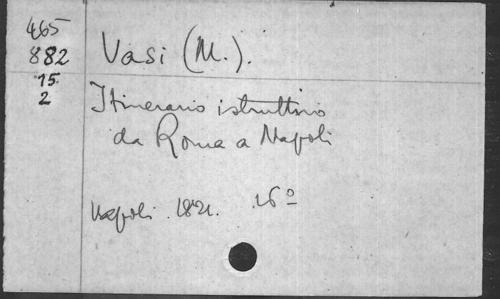 465
882
15
2
Vasi (M.).
Itinerario istruttivo
da Roma a Napoli
Napoli. 1821. 16º